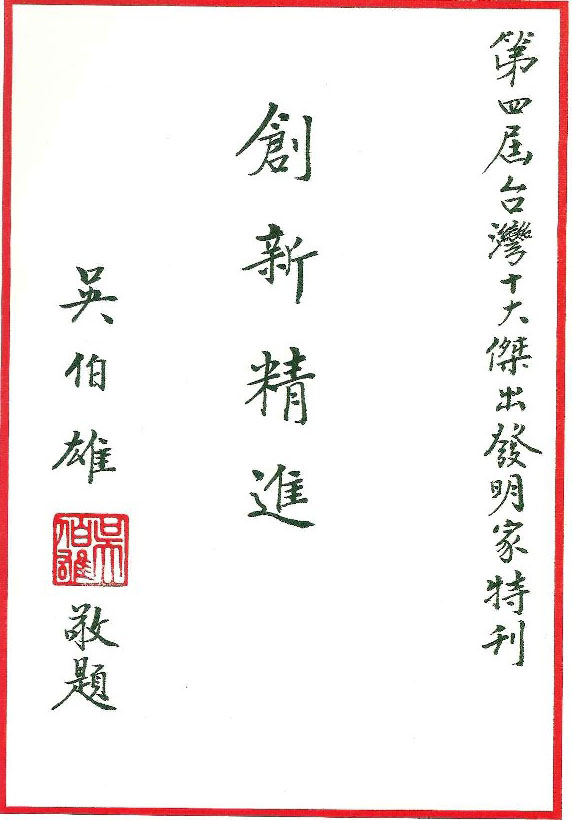 第四屆台灣十大傑出發明家特刊
創新精進
吳伯雄
吳伯雄
敬題